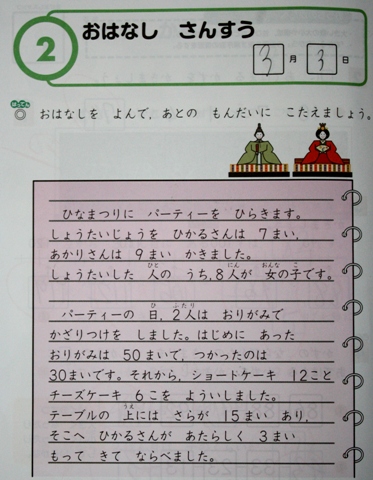 2
おはなし さんすう
3月 3日
はってん
◎ おはなしを よんで, あとの もんだいに こたえましょう。
ひなまつりに パーティーを ひらきます。
しょうたいじょうを ひかるさんは 7まい,
あかりさんは 9まい かきました。
しょうたいした 人の うち, 8人が 女の子です。
パーティーの 日, 2人は おりがみで
かざりつけを しました。はじめに あった
おりがみは 50まいで, つかったのは
30まいです。それから, ショードケーキ 12こと
チーズケーキ 6こを よういしました。
テーブルの 上には さらが 15まい あり,
そこへ ひかるさんが あたらしく 3まい
もって きて ならべました。